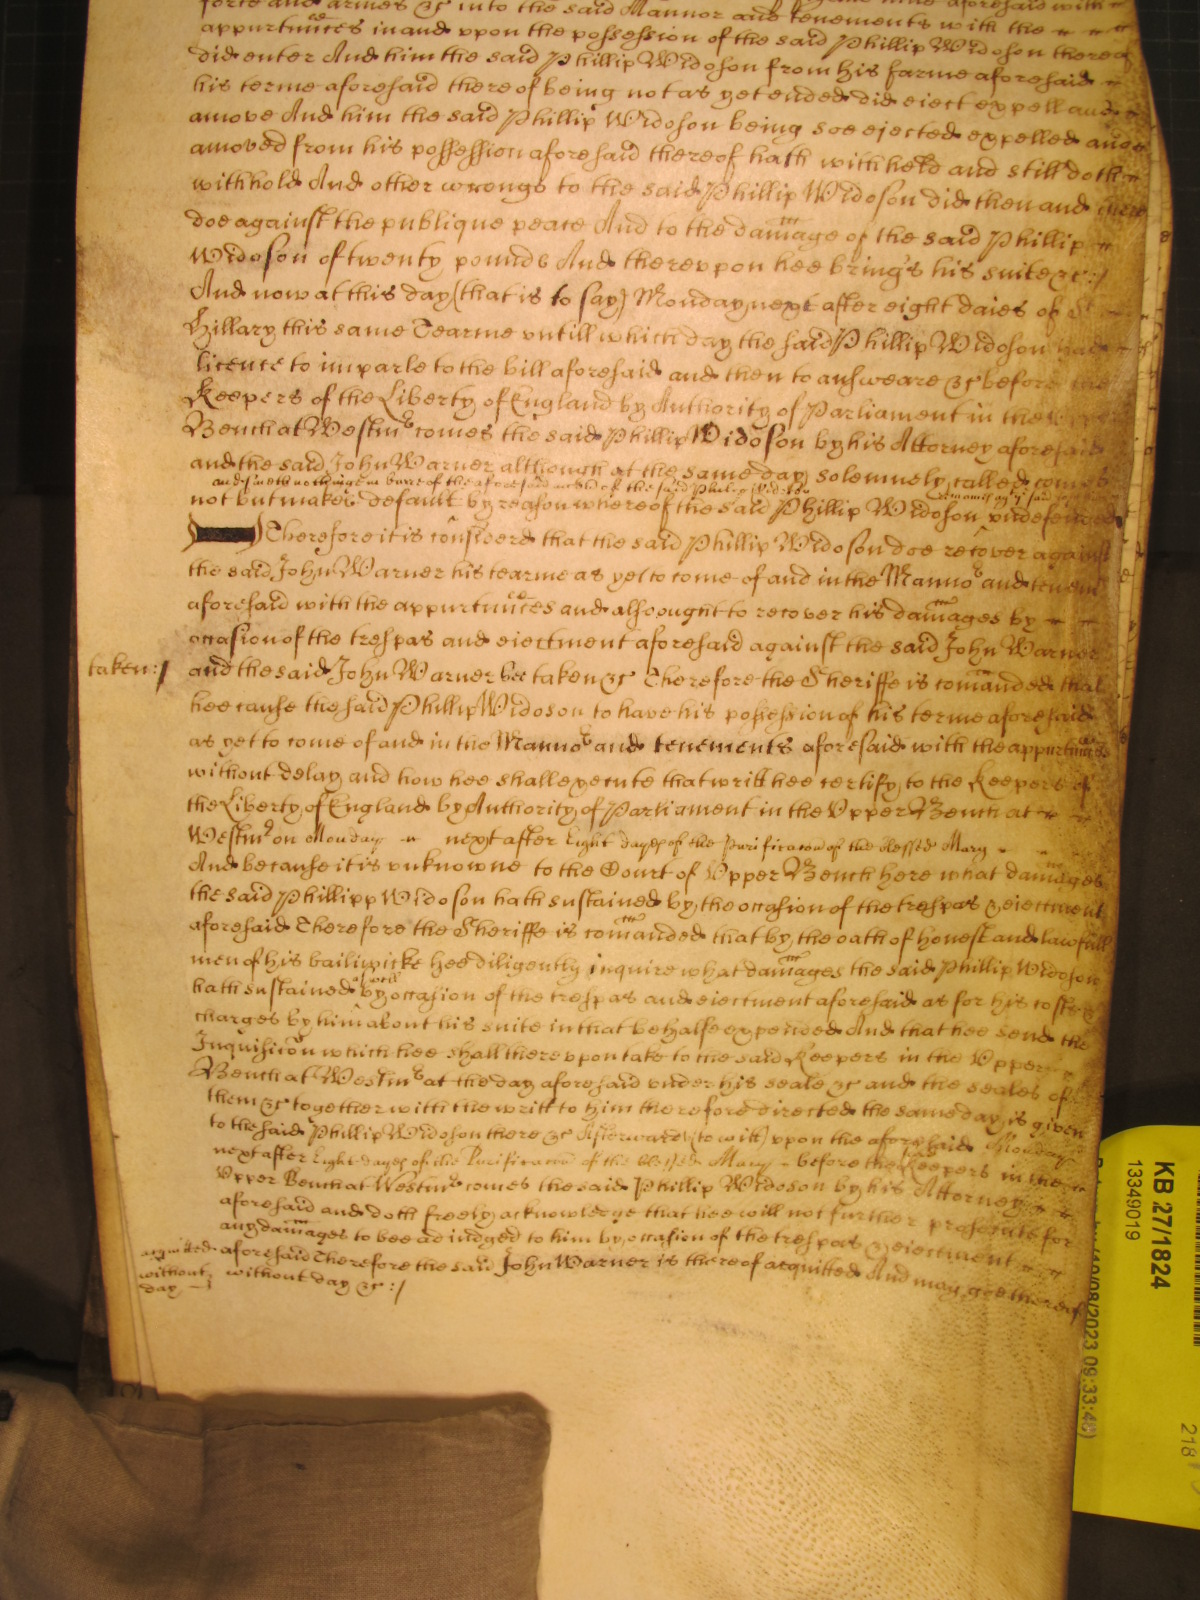 force and armes &c into the said Mannor and tenements with the
appurtnnces in and vpon the possession of the said Phillip Widoson thereof
did enter And him the said Phillip Widoson from his farme aforesaid
his terme aforesaid thereof being not as yet ended did eject expell and
amove And him the said Phillip Widoson being soe ejected expelled and
amoved from his possession aforesaid thereof hath withheld and still doth
withhold And other wrongs to the said Phillip Widoson did then and there
doe against the publique peace And to the damage of the said Phillip
Widoson of twenty pounds And therevpon hee bring's his suite &c:/
And now at this day (that is to say) Monday next after eight daies of St
Hillary this same Tearme vntill which day the said Phillip Widoson had
licence to imparle to the bill aforesaid and then to answeare &c before the
Keepers of the Liberty of England by Authority of Parliament in the
Bench at Westmr comes the said Phillip Widoson by his Attorney aforesaid
and the said John Warner although at the same day solemnely called comes
and sayeth nothinge in barre of the aforesaid accon of the said Philip Widoson
remaines agt ye said John
not but makes default by reason whereof the said Phillip Widoson vndefended
Therefore it is considerd that the said Phillip Widoson doe recover against
the said John Warner his tearme as yet to come of and in the Mannor and tenemts
aforesaid with the appurtnnces and alsoe ought to recover his damages by
occasion of the trespas and eiectment aforesaid against the said John Warner
taken:/ and the said John Warner bee taken &c Therefore the Sheriffe is comanded that
hee cause the said Phillip Widoson to have his possession of his terme aforesaid
as yet to come of and in the Mannor and tenements aforesaid with the appurtnnces
without delay and how hee shall execute that writt hee certify to the Keepers of
the Liberty of England by Authority of Parliament in the Vpper Bench at
Westmr on Monday next after Eight dayes of the Purificacon of the blessed Mary
And because it is vnknowne to the Court of Vpper Bench here what damages
the said Phillipp Widoson hath sustained by the occasion of the trespas & eiectment
aforesaid Therefore the Sheriffe is comanded that by the oath of honest and lawfull
men of his bailiwicke hee diligently inquire what damages the said Phillip Widoson
as well
hath sustained by occasion of the trespas and eiectment aforesaid as for his costs &
charges by him about his suite in that behalfe expended And that hee send the
Inquisicon which hee shall therevpon take to the said Keepers in the Vpper
Bench at Westmr at the day aforesaid vnder his seale &c and the seales of
them &c together with the writt to him therefore directed the same day is given
to the said Phillip Widoson there &c Afterwards (to witt) vpon the aforesaid Monday
next after Eight dayes of the Purificacon of the blessed Mary before the Keepers in the
Vpper Bench at Westmr comes the said Phillip Widoson by his Attorney
aforesaid and doth freely acknowledge that hee will not further prosecute for
any damages to bee adiudged to him by occasion of the trespas & eiectment
acquitted aforesaid Therefore the said John Warner is thereof acquitted And may goe thereof
without without day &c:/
day
KB 27/1824
13349019
10/08/2023 09:33:43
218